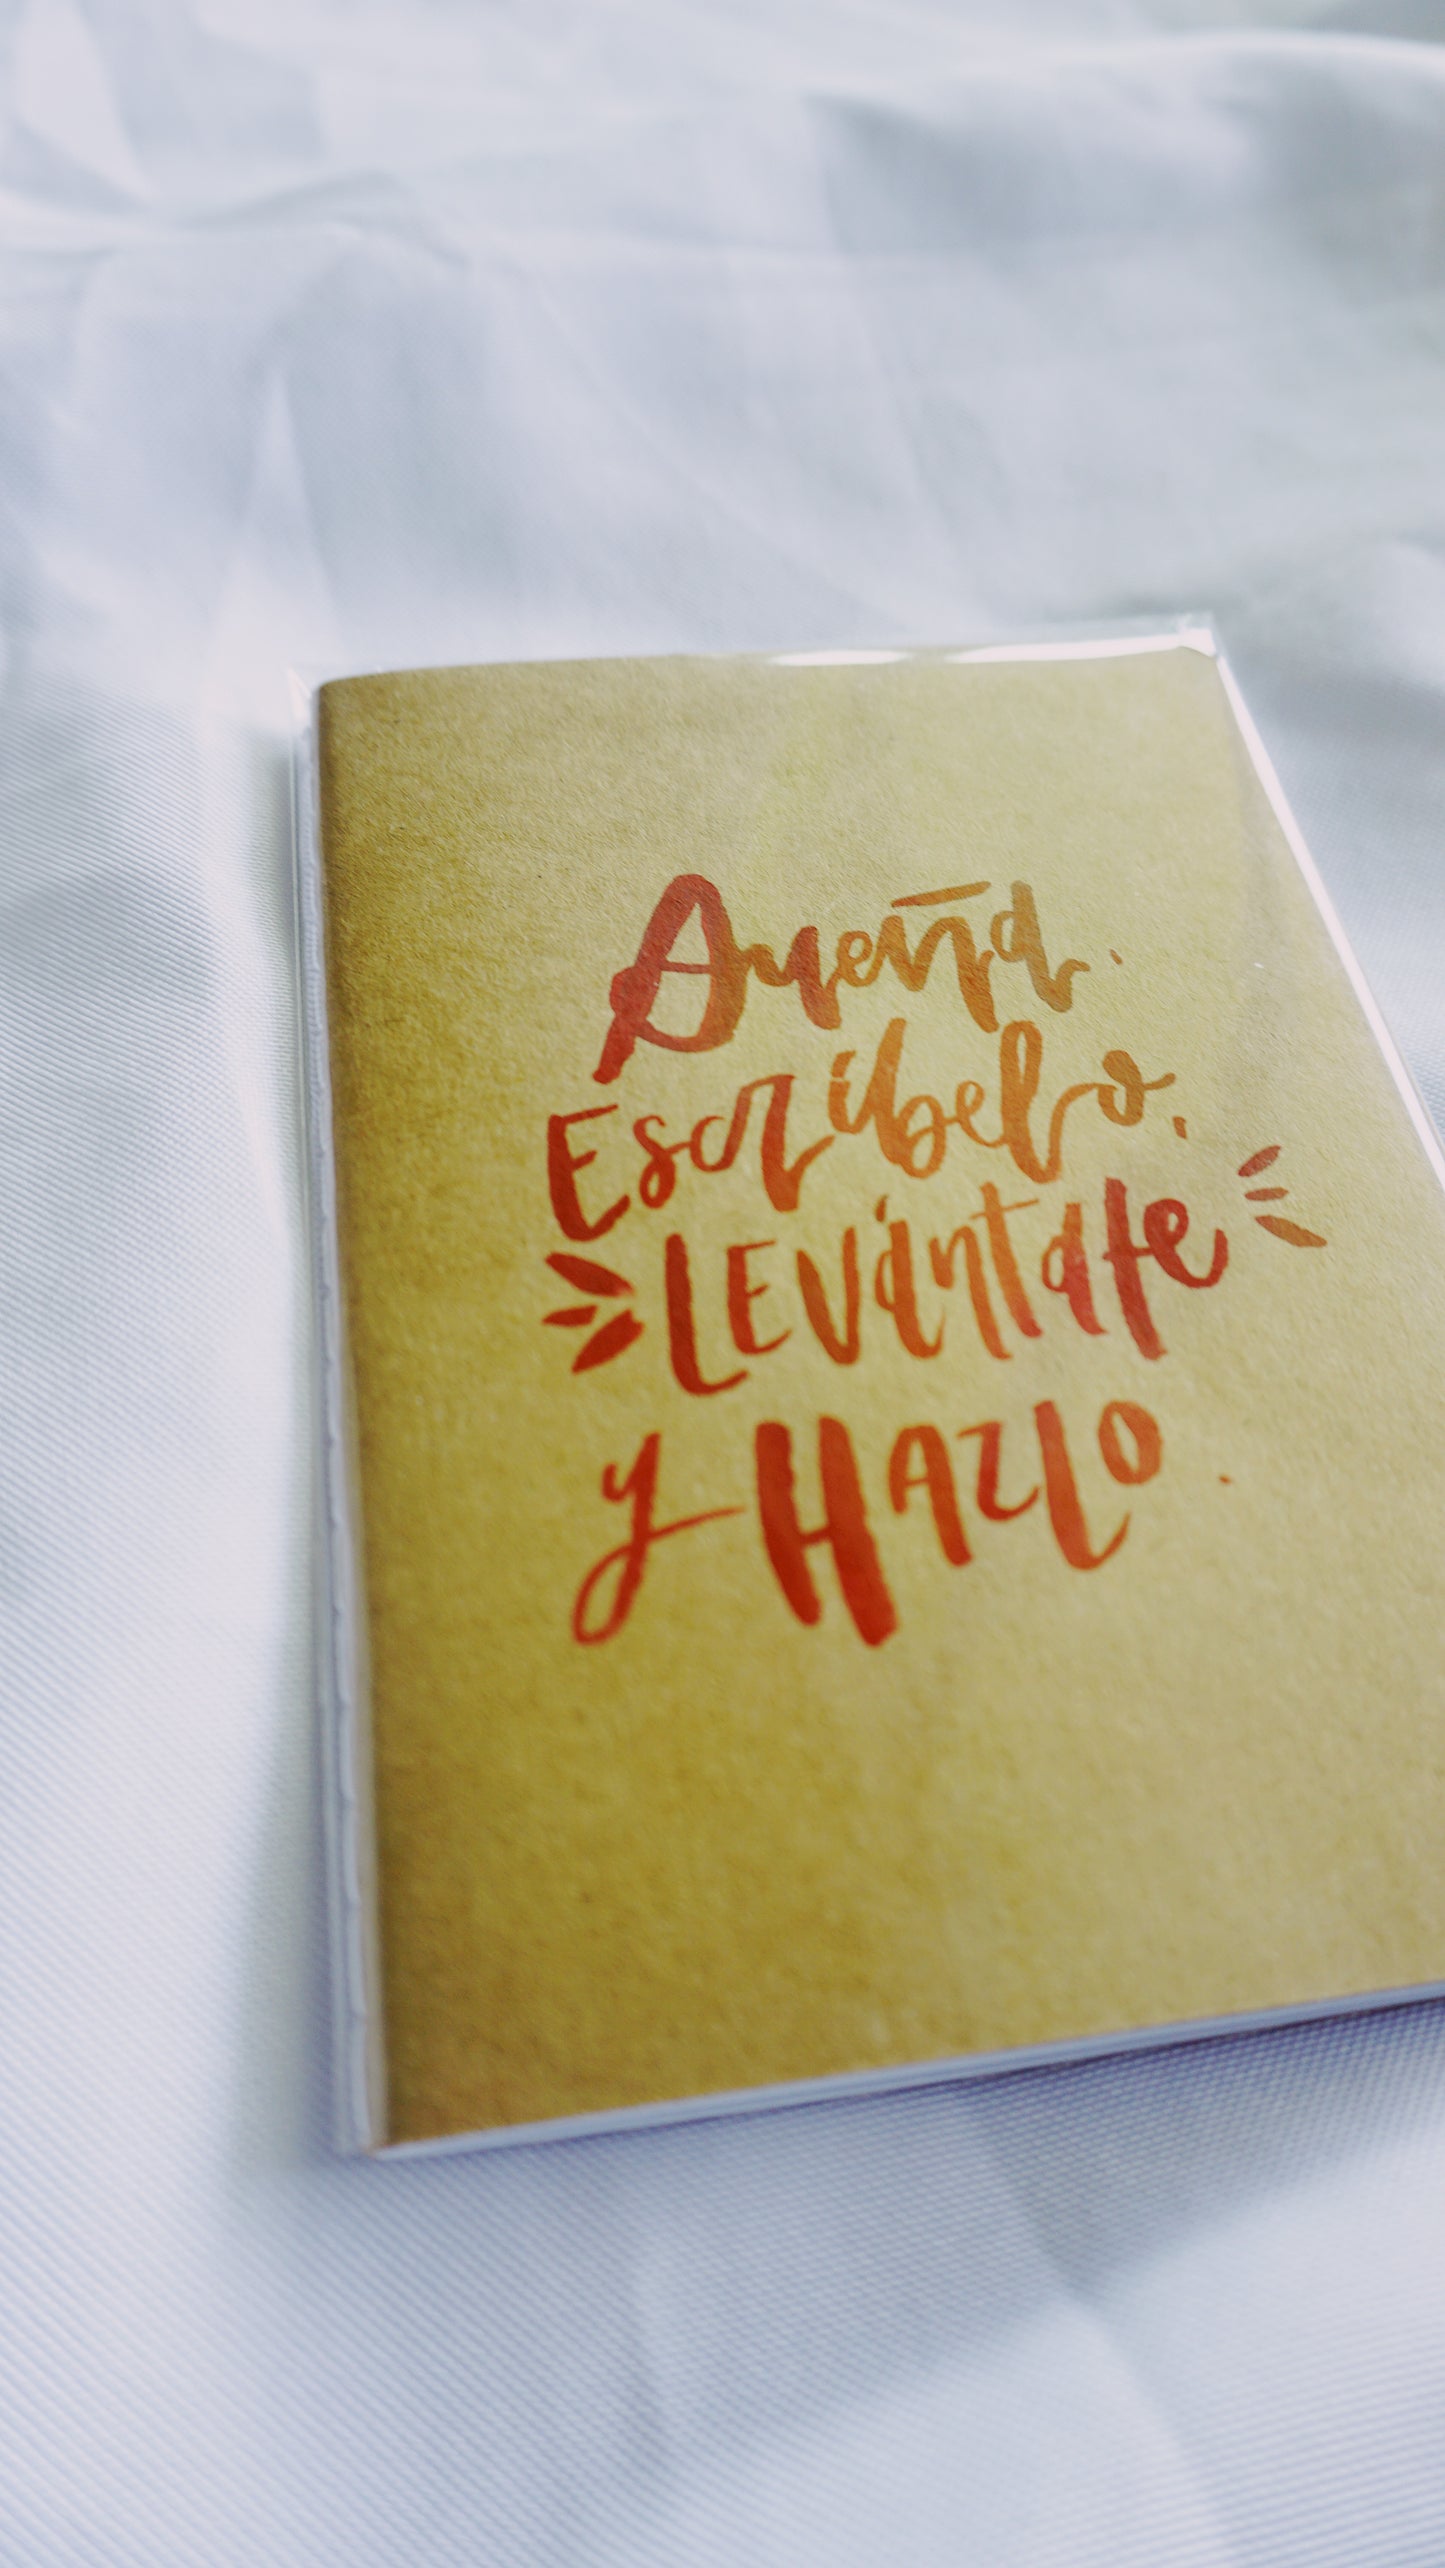 Sueña.
Escríbelo,
LEVántate
y HAZLO.